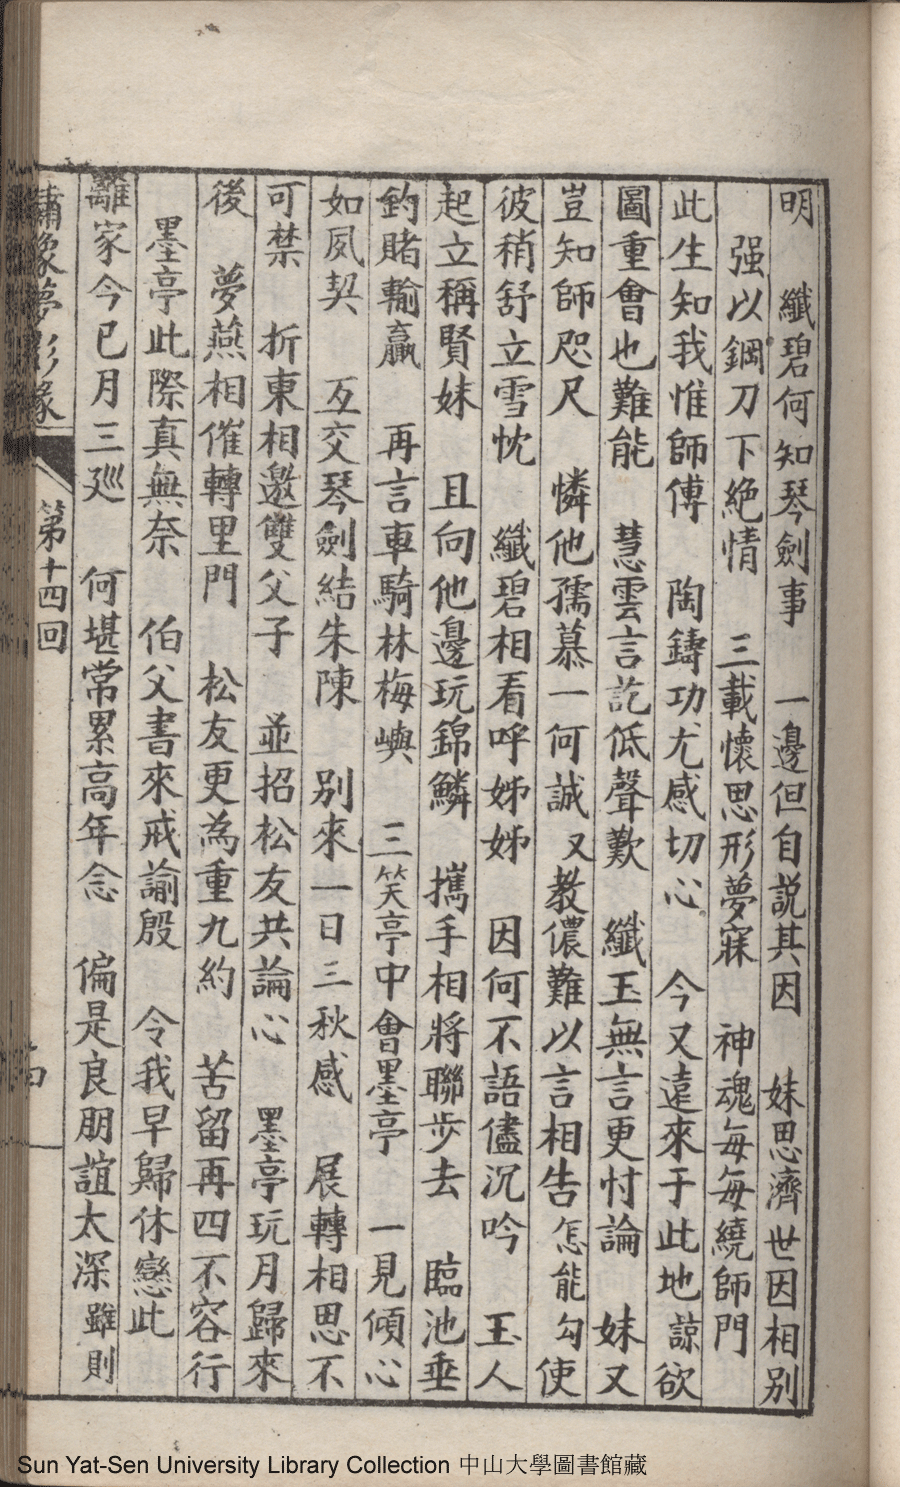 明　纖碧何知琴劍事　一邊但自説其因　妹思濟世因相別
强以鋼刀下絶情　三載懷思形夢寐　神魂每每繞師門
此生知我惟師傅　陶鑄功尤感切心　今又遠來于此地諒欲
圖重會也難能　慧雲言訖低聲歎　纖玉無言更忖論　妹又
豈知師咫尺　憐他孺慕一何誠又教儂難以言相告怎能勾使
彼稍舒立雪忱　纖碧相看呼姊姊　因何不語儘沉吟　玉人
起立稱賢妹　且向他邊玩錦鱗　攜手相將聯步去　臨池垂
釣賭輸贏　再言車騎林梅嶼　三笑亭中會墨亭　一見傾心
如夙契　互交琴劍結朱陳　別來一日三秋感　展轉相思不
可禁　折柬相邀雙父子　並招松友共論心　墨亭玩月歸來
後　夢燕相催轉里門　松友更為重九約　苦留再四不容行
墨亭此際真無奈　伯父書來戒諭殷　令我早歸休戀此
離家今已月三巡　何堪常累高年念　偏是良朋誼太深雖則
繡像夢影緣　第十四回
中山大學圖書館藏
Sun Yat-Sen University Library Collection